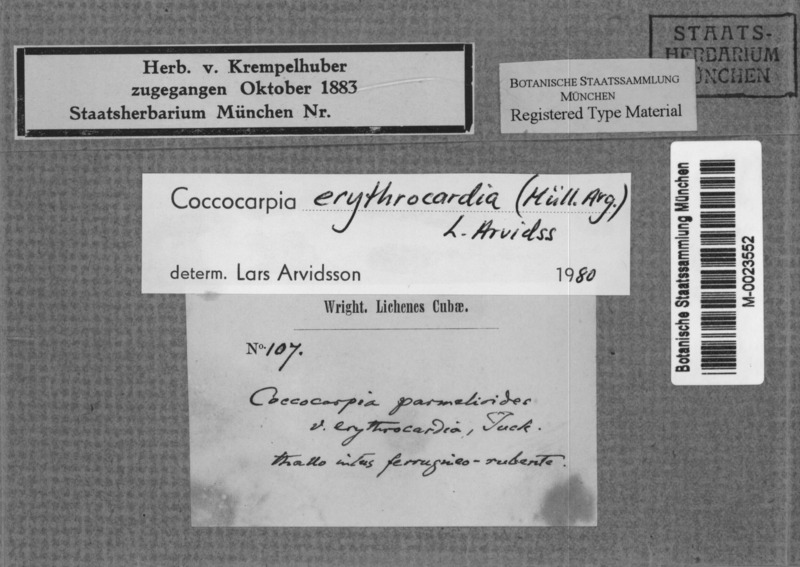 Herb. v. Krempelhuber
zugegangen Oktober 1883
Staatsherbarium München Nr.
STAATS-
HERBARIUM
MÜNCHEN
BOTANISCHE STAATSSAMMLUNG
MÜNCHEN
Registered Type Material
Coccocarpia erythrocardia (Müll. Arg.)
L. Arvidss
determ. Lars Arvidsson 1980
Botanische Staatssammlung München
M-0023552
Wright. Lichenes Cubæ.
No. 107.
Coccocarpia parmelioides
v. erythrocardia, Tuck.
thallo intus ferrugineo-rubente.